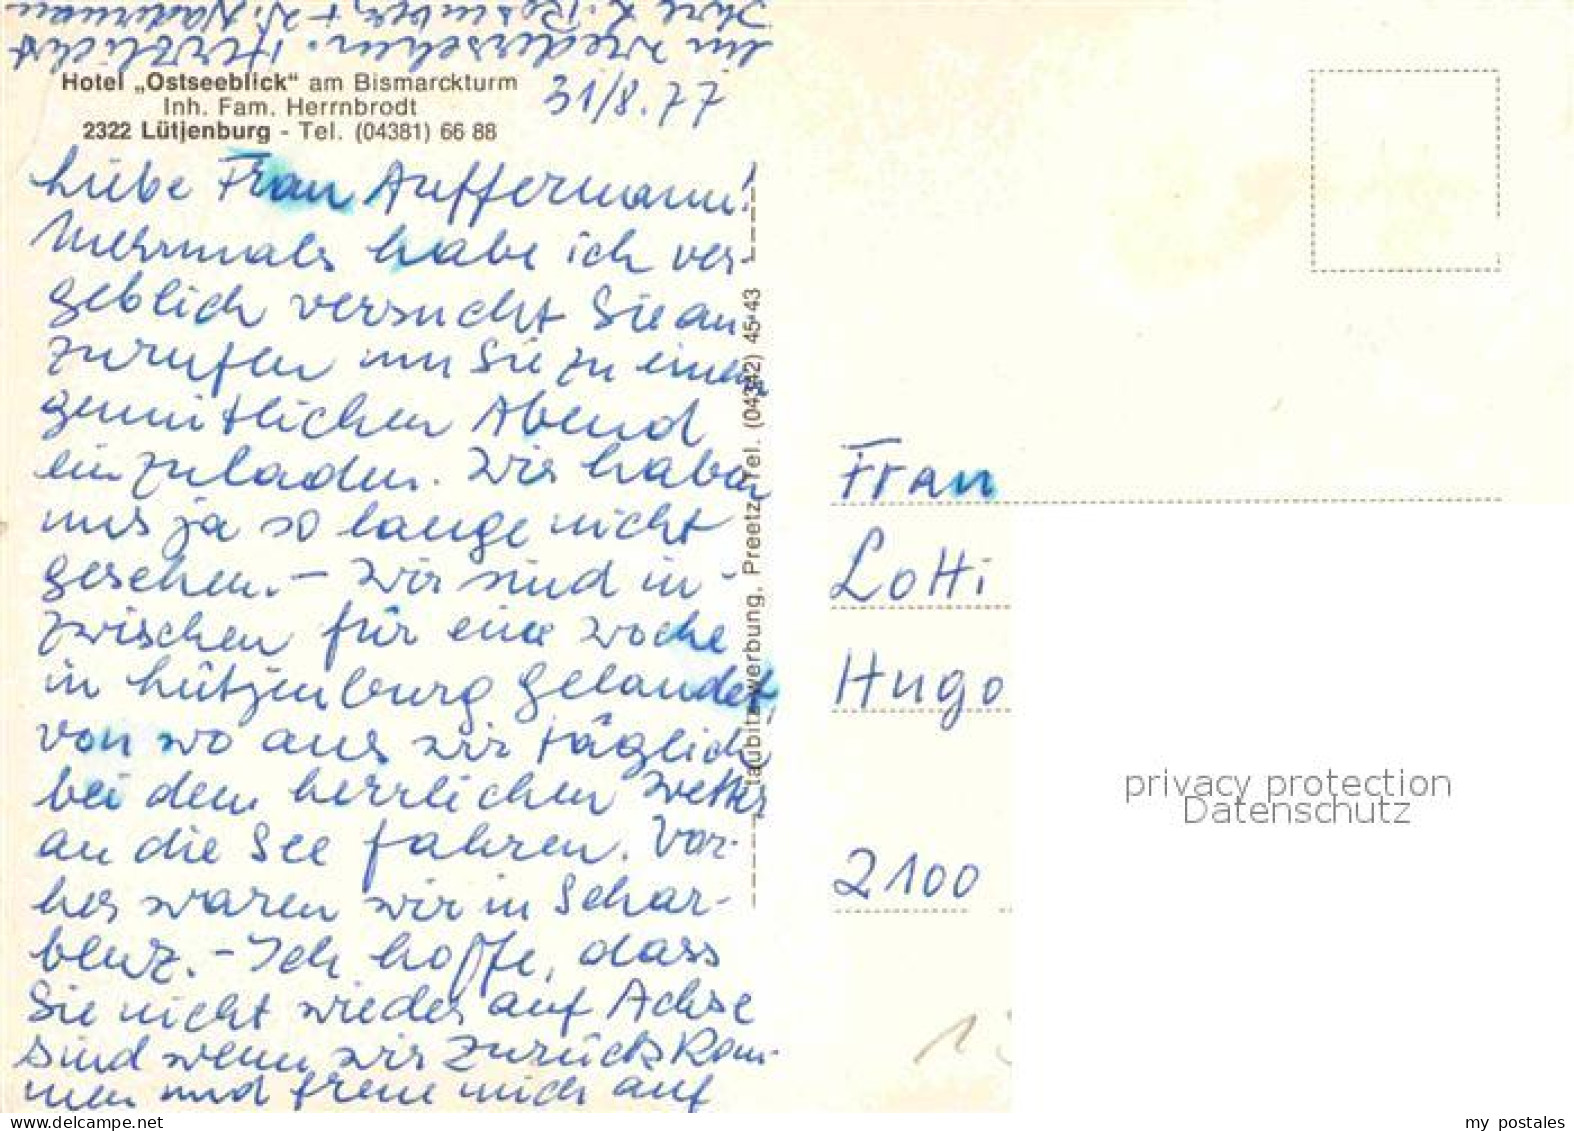 Hotel „Ostseeblick“ am Bismarckturm
Inh. Fam. Herrnbrodt
2322 Lütjenburg - Tel. (04381) 66 88
31/8.77
Liebe Frau Auffermann!
Mehrmals habe ich ver-
geblich versucht Sie an
zurufen um Sie zu einem
gemütlichen Abend
einzuladen. Wir haben
uns ja so lange nicht
gesehen. – Wir sind in-
zwischen für eine Woche
in Lütjenburg gelandet,
von wo aus wir täglich
bei dem herrlichen Wetter
an die See fahren. Vor-
her waren wir in Schar-
beuz. – Ich hoffe, dass
Sie nicht wieder auf Achse
sind wenn wir zurück kom-
men und freue mich auf
ein Wiedersehen. Herzlichst
Ihre
taubitz-werbung, Preetz, Tel. (04342) 45 43
Frau
Lotti
Hugo
2100
privacy protection
Datenschutz
www.delcampe.net
my_postales